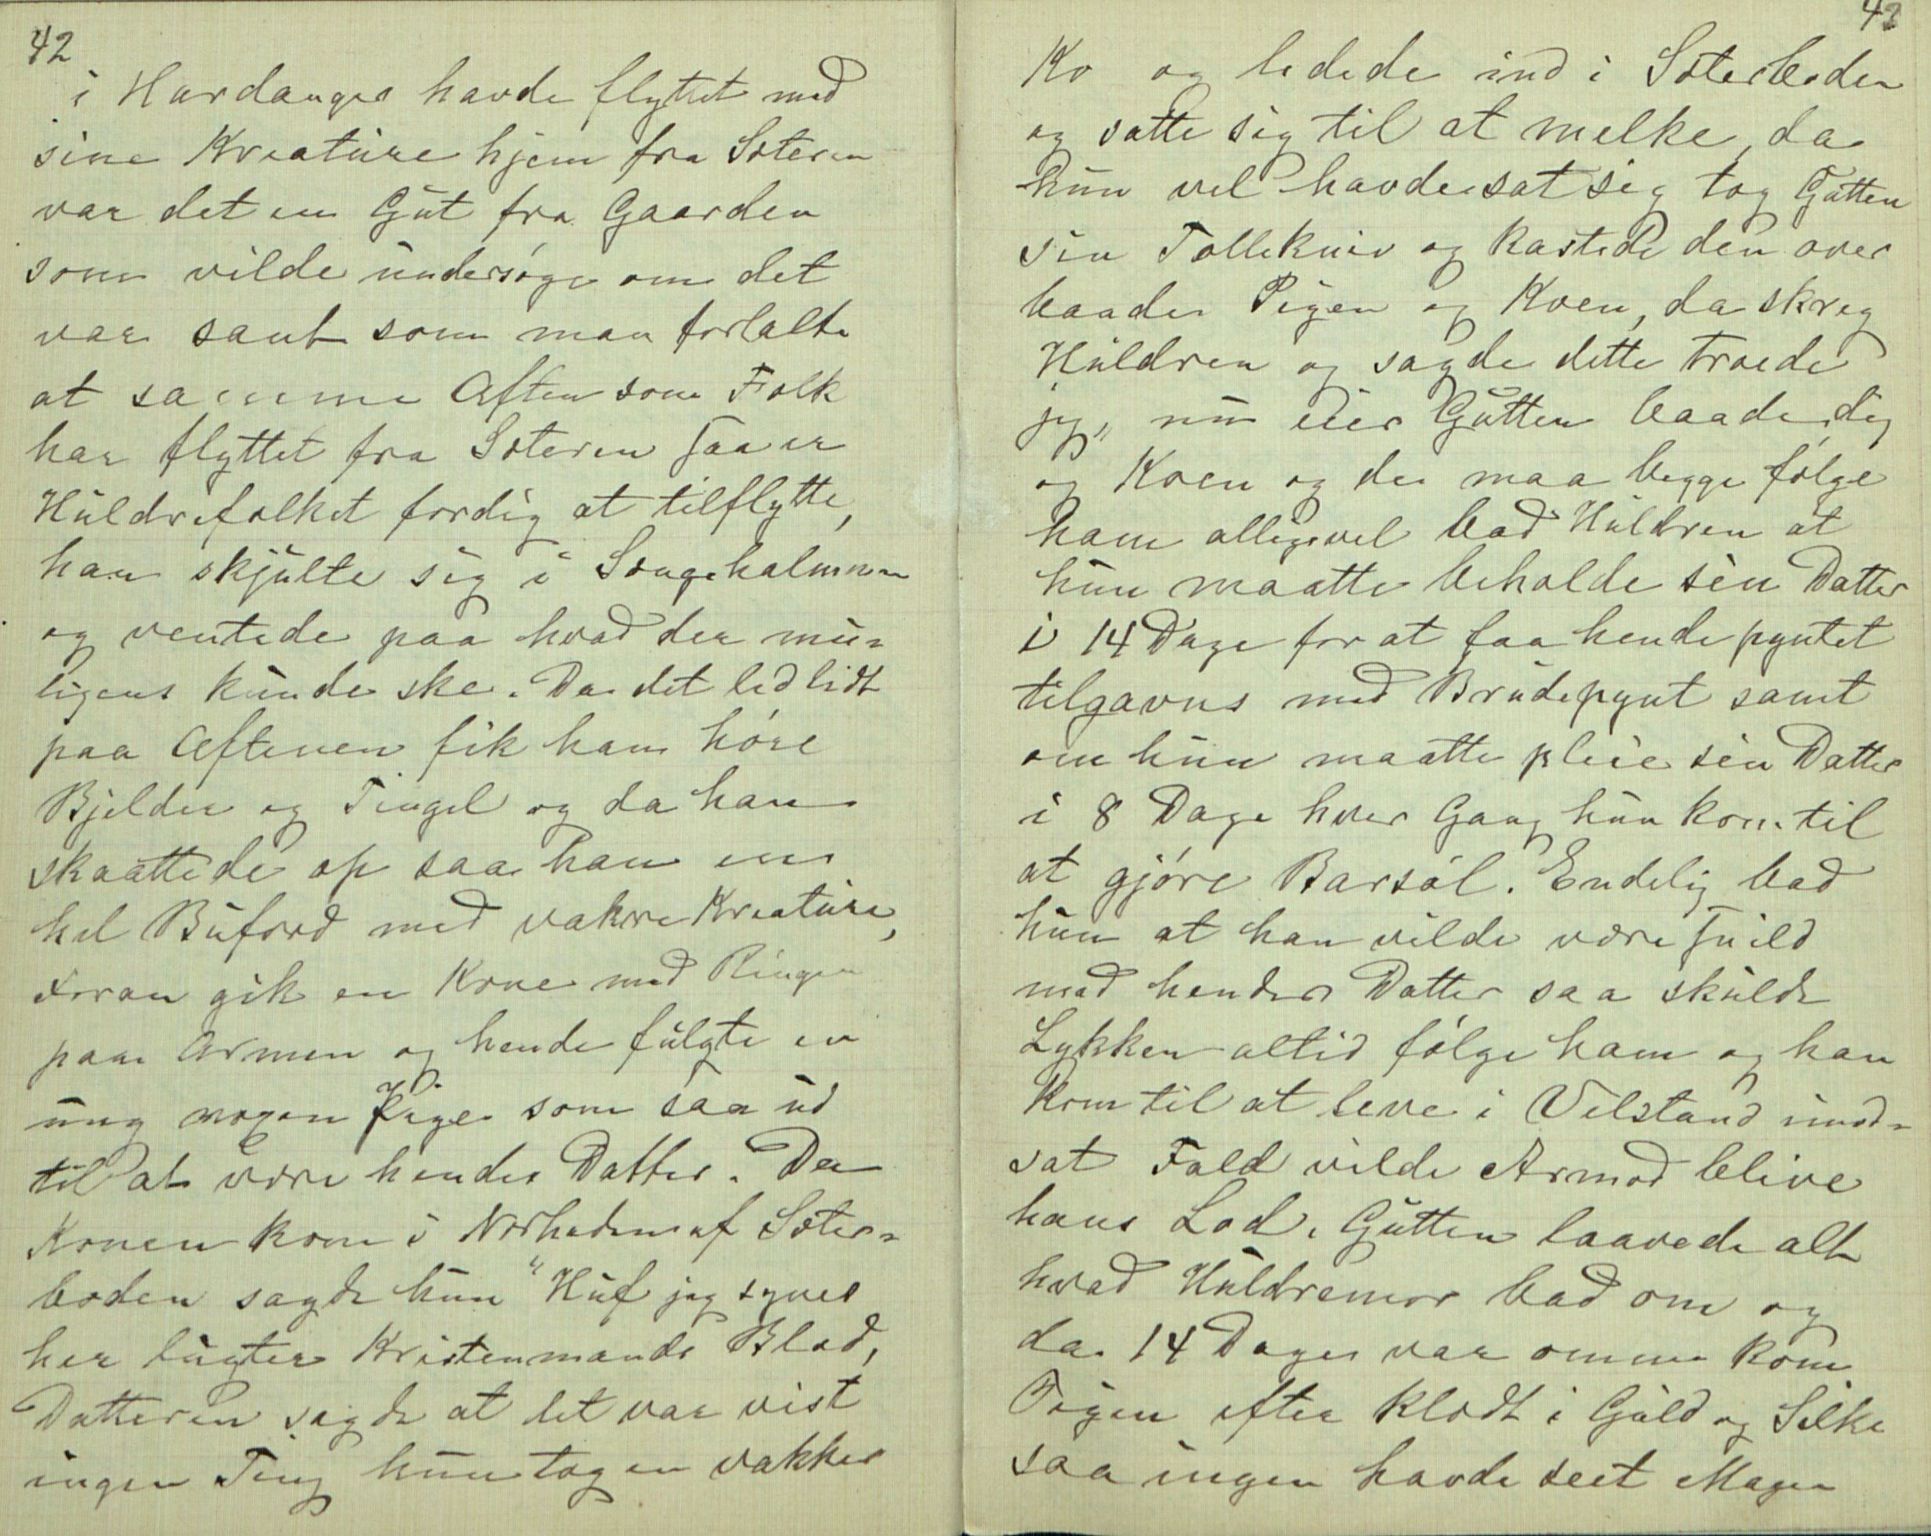 42
i Hardanger havde flyttet med
sine Kreature hjem fra Sæteren
var det en Gut fra Gaarden
som vilde undersøge om det
var sant som man fortalte
at samme Aften som Folk
har flyttet fra Sæteren saa er
Huldrefolket færdig at tilflytte,
han skjulte sig i Sengehalmen
og ventede paa hvad der mu-
ligens kunde ske. Da det led lidt
paa Aftenen fik han høre
Bjelder og Tingel og da han
skaattede op saa han en
hel Buferd med vakre Kreature,
foran gik en Kone med Ringer
paa Armen og hende fulgte en
ung voxen Pige som saa ud
til at være hendes Datter. Da
Konen kom i Nærheden af Sæter-
boden sagde hun "Huf jeg synes
her lugter Kristenmands Blod,
Datteren sagde at det var vist
ingen Ting hun tog en vakker
43
Ko og ledede ind i Sæterboden
og satte sig til at melke, da
hun vel havde sat sig tog Gutten
sin Tollekniv og kastede den over
baade Pigen og Koen, da skreg
Huldren og sagde dette troede
jeg, nu eier Gutten baade dig
og Koen og de maa begge følge
ham alligevel bad Huldren at
hun maatte beholde sin Datter
i 14 Dage for at faa hende pyntet
tilgavns med Brudepynt samt
om hun maatte pleie sin Datter
i 8 Dage hver Gang hun kom til
at gjøre Barsøl. Endelig bad
hun at han vilde være snild
mod hendes Datter saa skulde
Lykken altid følge ham og han
kom til at leve i Velstand imod-
sat Fald vilde Armod blive
hans Lod. Gutten laavede alt
hvad Huldremor bad om og
da 14 Dager var omme kom
Pigen efter klædt i Guld og Silke
saa ingen havde seet Magen